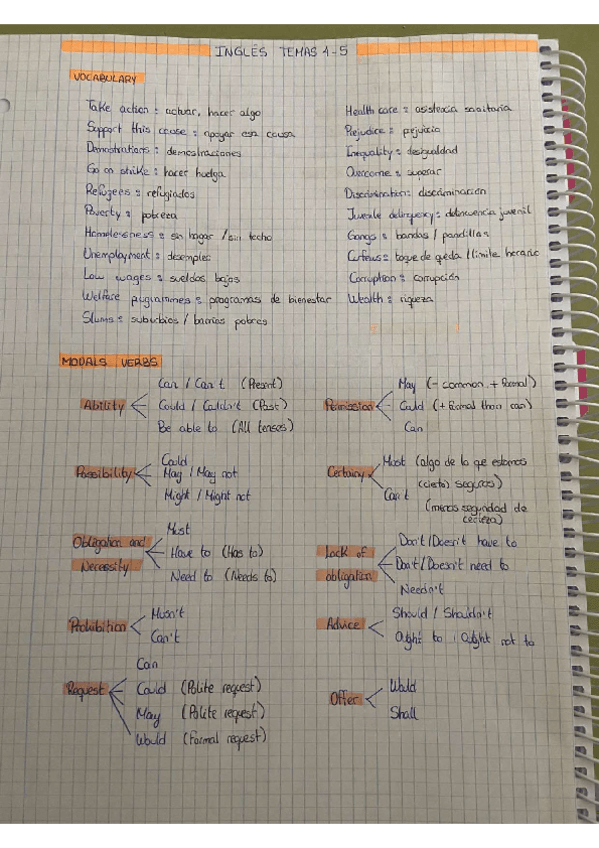 INGLÉS TEMAS 4-5
VOCABULARY
Take action : actuar, hacer algo
Support this cause : apoyar esa causa
Demostrations : demostraciones
Go on strike : hacer huelga
Refugees : refugiados
Poverty : pobreza
Homelessness : sin hogar / sin techo
Unemployment : desempleo
Low wages : sueldos bajos
Welfare programmes : programas de bienestar
Slums : suburbios / barrios pobres
Health care : asistencia sanitaria
Prejudice : prejuicio
Inequality : desigualdad
Overcome : superar
Discrimination : discriminación
Juvenile delinquency : delincuencia juvenil
Gangs : bandas / pandillas
Curfews : toque de queda / límite horario
Corruption : corrupción
Wealth : riqueza
MODALS VERBS
Ability
Can / Can't (Present)
Could / Couldn't (Past)
Be able to (All tenses)
Permission
May (- common, + formal)
Could (+ formal than can)
Can
Possibility
Could
May / May not
Might / Might not
Certainty
Must (algo de lo que estamos
(cierto) seguros)
Can't
(menos seguridad de
certeza)
Obligation and
Necessity
Must
Have to (Has to)
Need to (Needs to)
Lack of
obligation
Don't / Doesn't have to
Don't / Doesn't need to
Needn't
Prohibition
Musn't
Can't
Advice
Should / Shouldn't
Ought to / Ought not to
Request
Can
Could (Polite request)
May (Polite request)
Would (Formal request)
Offer
Would
Shall